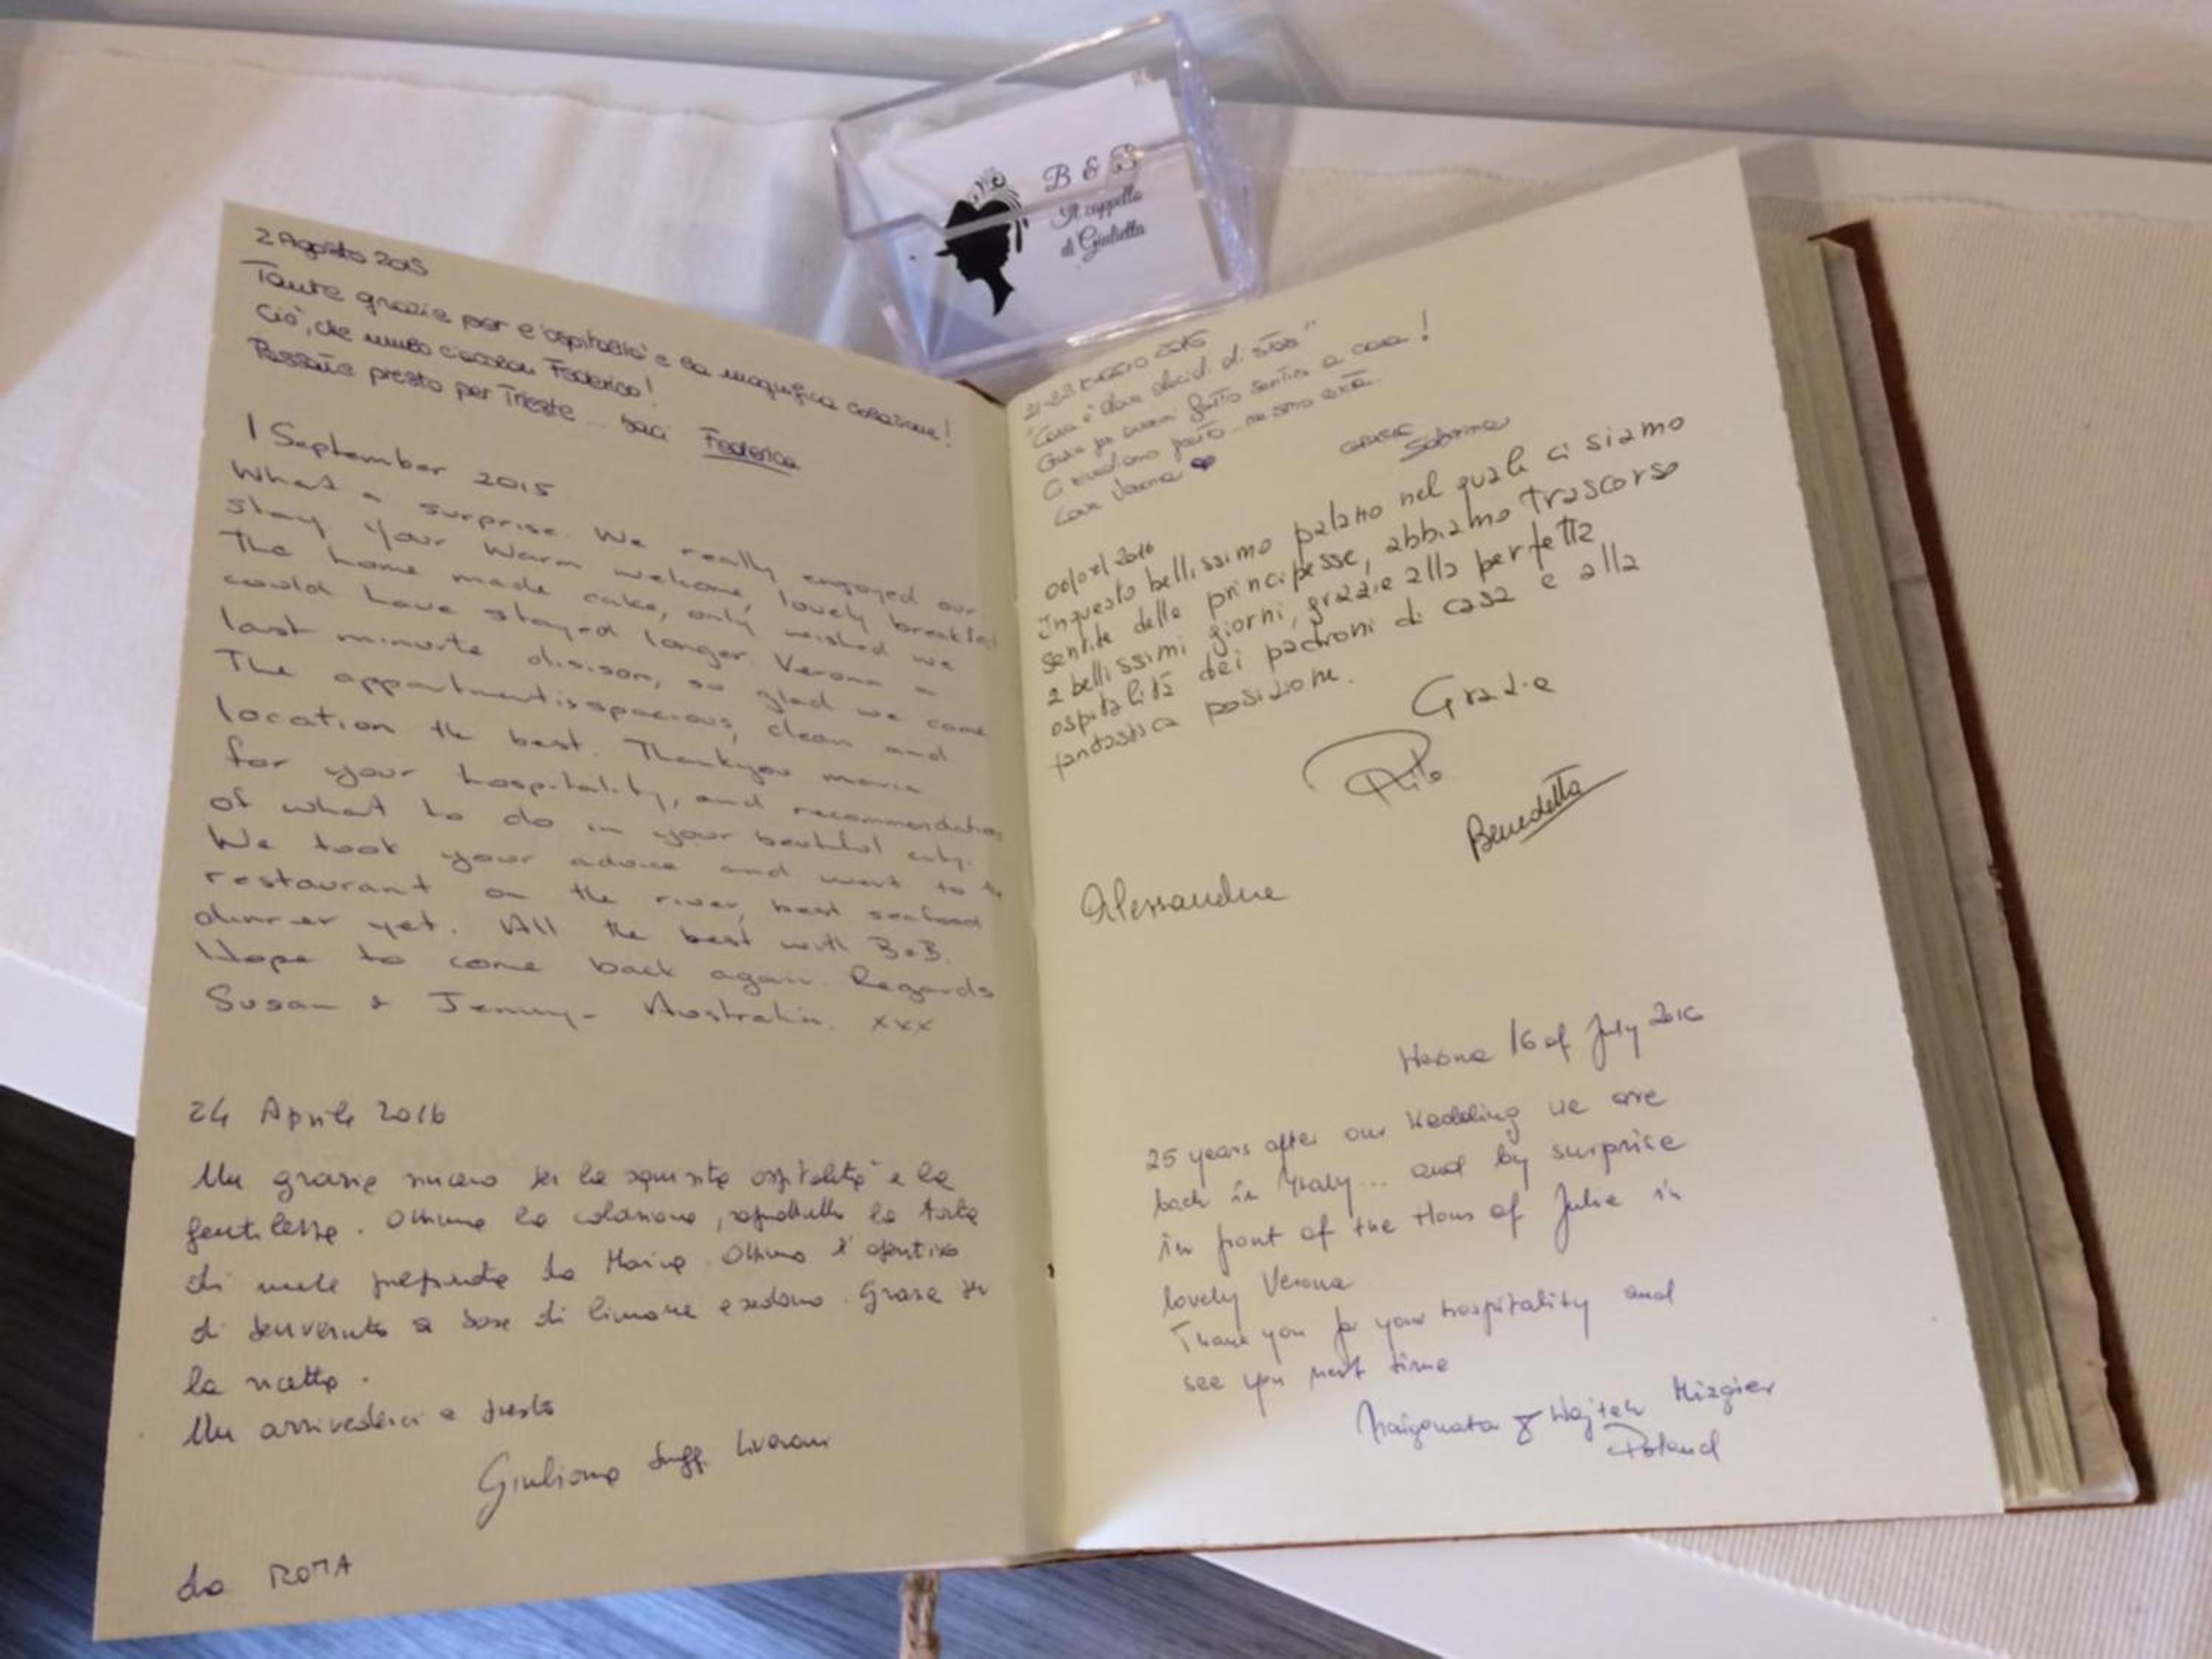 B & B
Il cappello
di Giulietta
2 Agosto 2015
Tante grazie per l'ospitalità e la magnifica colazione!
Ciò, che muso Federico!
presto per Trieste... baci Federica
1 September 2015
What a surprise. We really engoyed our
stay your warm welcome, lovely breakfast
The home made cake, only wished we
could have stayed longer. Verona a
last minute divison, so glad we came
The appartment is spacious, clean and
location the best. Thankyou maria
for your hospitality, and recommendation
of what to do in your beutiful city.
We took your advice and went to the
restaurant on the river, best seafood
dinner yet. All the best with B&B.
Hope to come back again. Regards
Susan & Jenny - Australia. xxx
24 Aprile 2016
Un grazie sincero per la squisita ospitalità e la
gentilezza. Ottima la colazione, soprattutto la torta
di mele preparata da Maria. Ottimo l'aperitivo
di benvenuto a base di limone e sedano. Grazie per
la ricetta.
Un arrivederci a presto
Giuliana
da ROMA
2016
"Casa è dove decidi di stare"
Grazie per avermi fatto sentire a casa!
Ci
Verona
Grazie
Sabrina
2016
In questo bellissimo palazzo nel quale ci siamo
sentite delle principesse, abbiamo trascorso
2 bellissimi giorni, grazie alla perfetta
ospitalità dei padroni di casa e alla
fantastica posizione.
Grazie
Benedetta
16 of July 2016
25 years after our Wedding we are
back in Italy... and by surprise
in front of the Hous of Julie in
lovely Verona
Thank you for your hospitality and
see you next time
& Wojtek Mizgier
Poland